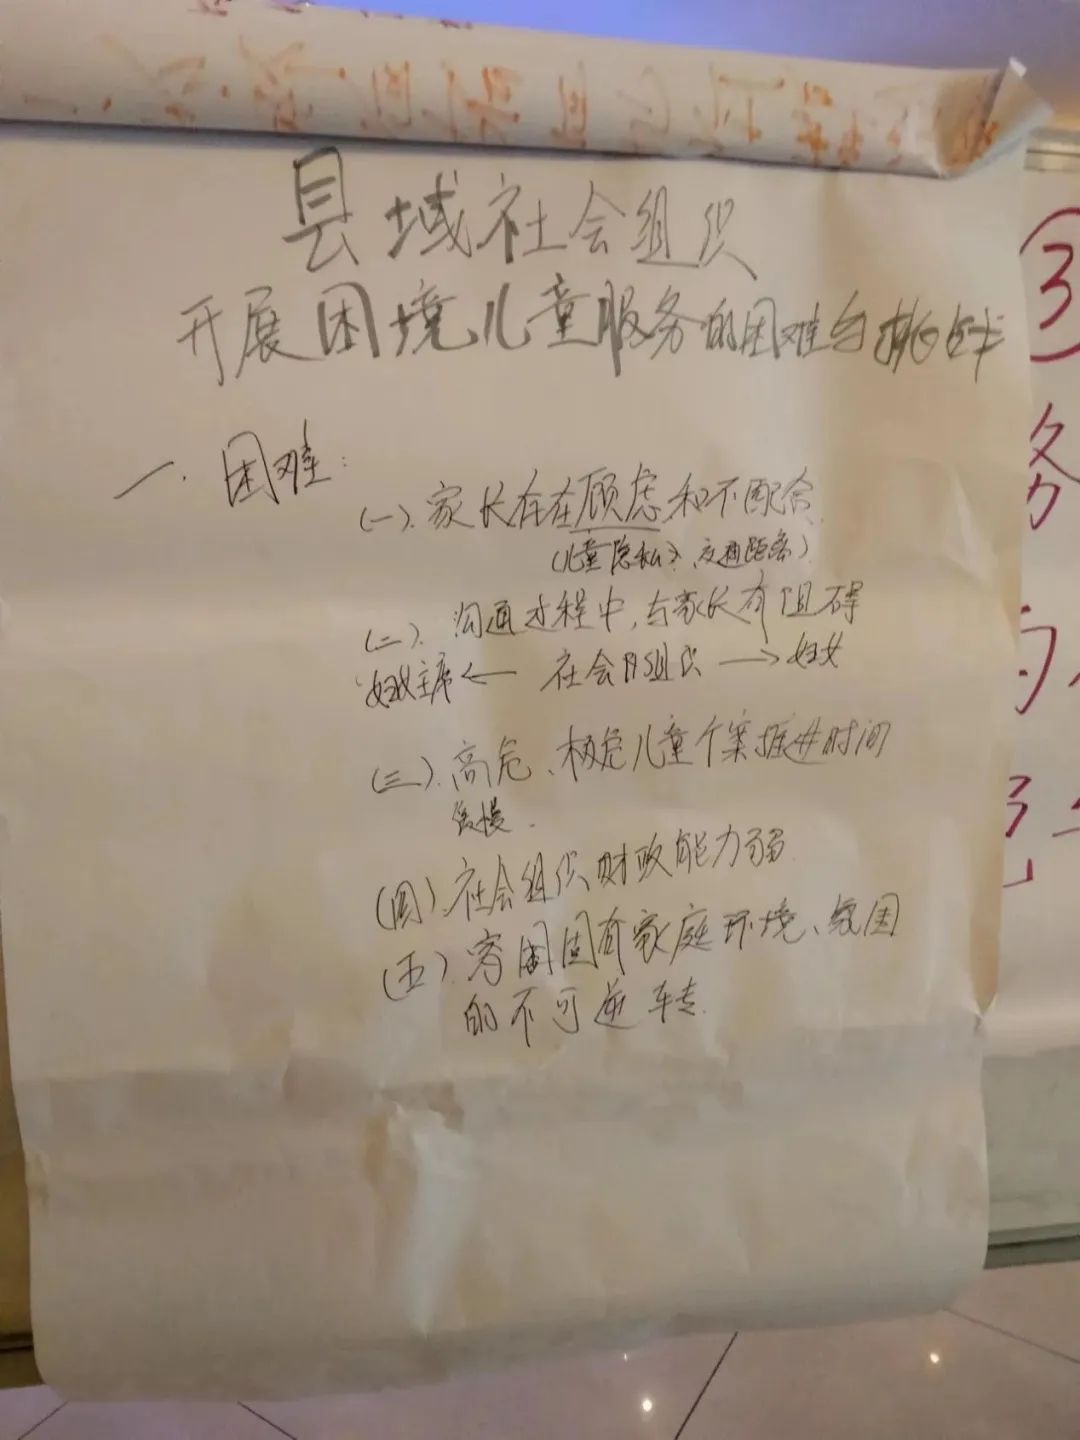 县域社会组织
开展困境儿童服务的困难与挑战
一. 困难:
(一). 家长存在顾虑和不配合.
(儿童隐私、交通距离)
(二). 沟通过程中,与家长有阻碍
妇女主席 ← 社会组织 → 妇女
(三). 高危、极危儿童个案推进时间
缓慢.
(四). 社会组织财政能力弱.
(五). 固有家庭环境、氛围
的不可逆转.
③
务